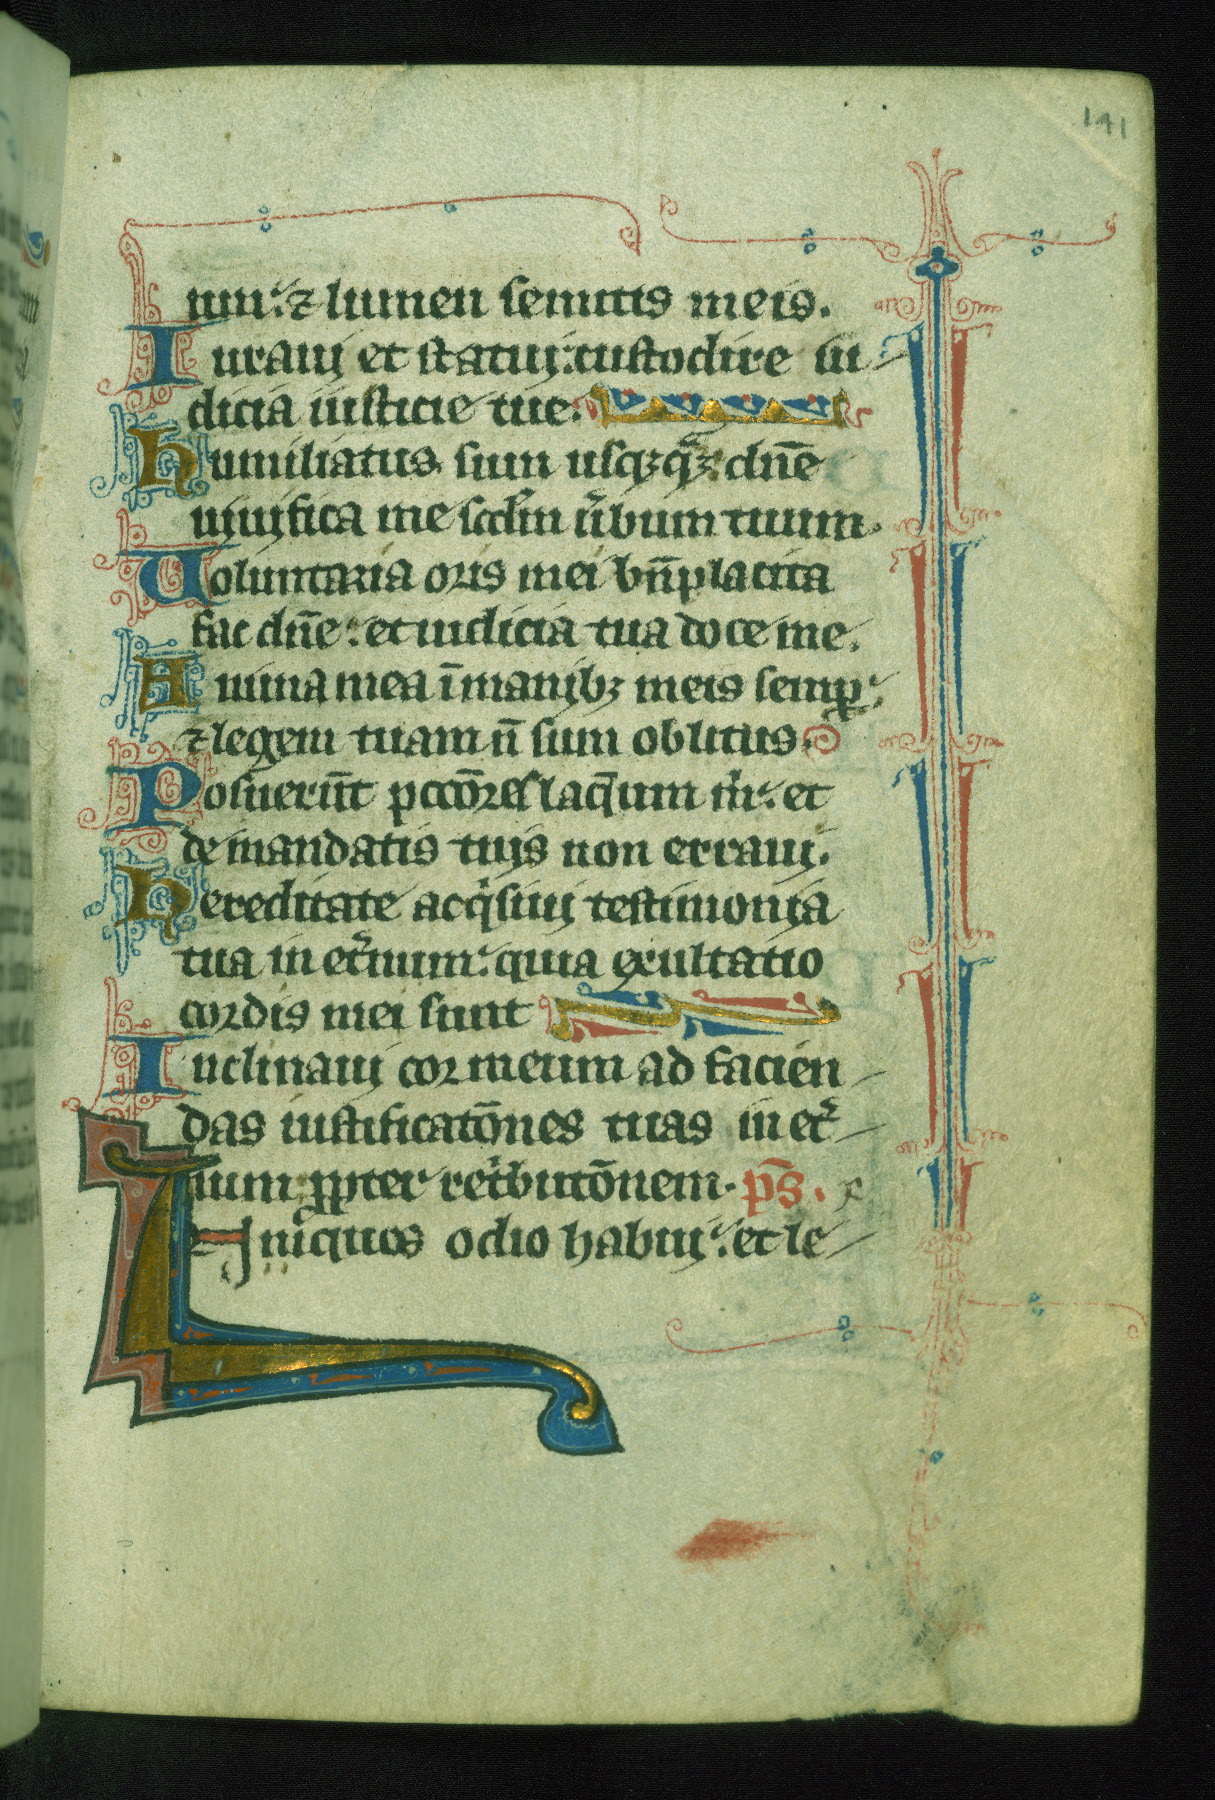 191
uum: ⁊ lumen semitis meis.
Iuraui et statui: custodire iu-
dicia iusticie tue.
Humiliatus sum usqꝫq̃ꝫ dñe
uiuifica me scdm u̾bum tuum.
Voluntaria oris mei bn̄placita
fac dñe: et iudicia tua doce me.
Anima mea ī manibꝫ meis semꝑ:
⁊ legem tuam n̄ sum oblitus.
Posuerūt pcc̄ores laq̄um m̓: et
de mandatis tuis non erraui.
Hereditate acq̓siui testimonia
tua in et̾num: quia exultatio
cordis mei sunt
Inclinaui cor meum ad facien-
das iustificatōnes tuas in et̾-
num ꝓpter ret̓butōnem. p̄s.
Iniquos odio habui: et le-